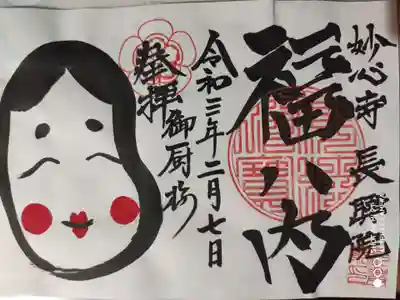 妙心寺 長興院
福ハ内
令和三年二月七日
奉拝
御厨